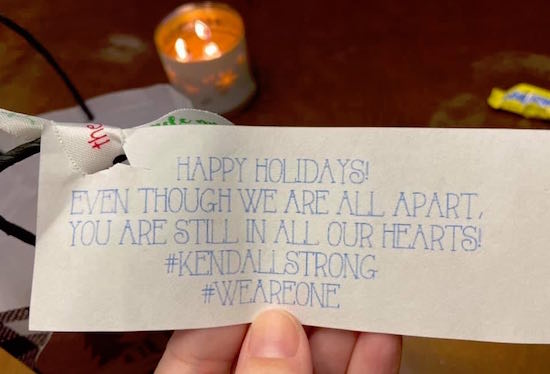 HAPPY HOLIDAYS!
EVEN THOUGH WE ARE ALL APART,
YOU ARE STILL IN ALL OUR HEARTS!
#KENDALLSTRONG
#WEAREONE
the